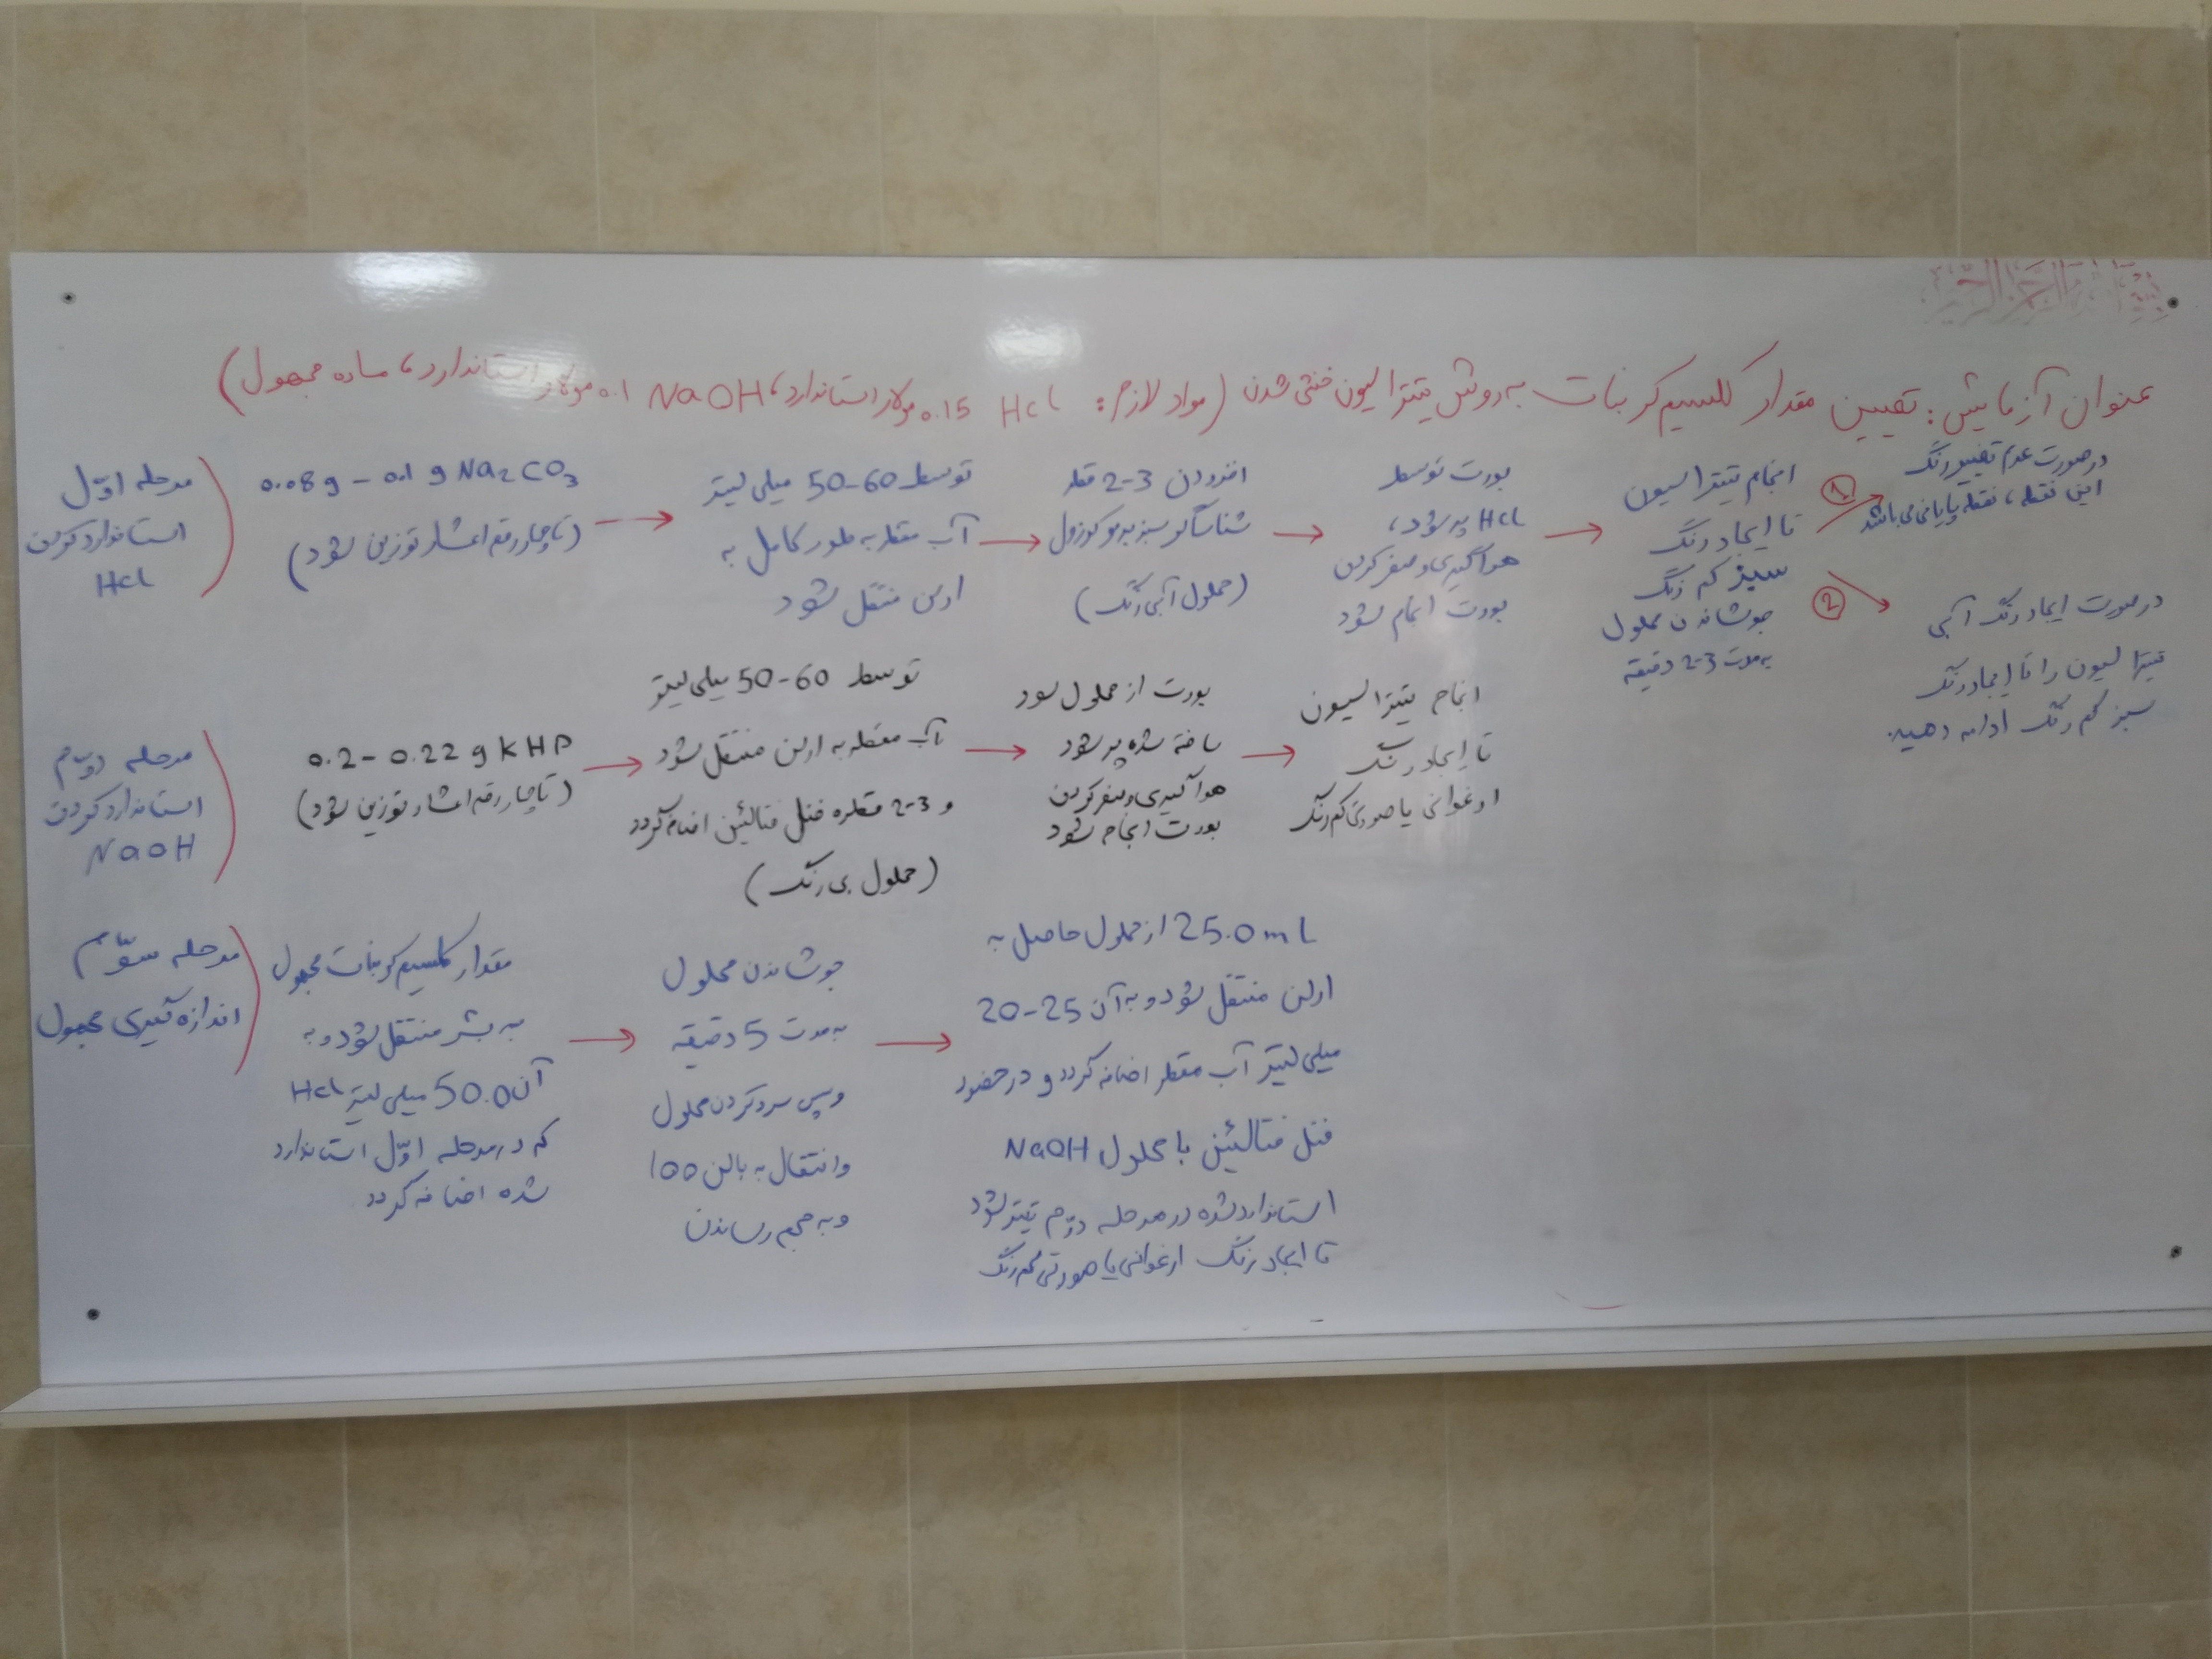 بسم الله الرحمن الرحیم
عنوان آزمایش: تعیین مقدار کلسیم کربنات به روش تیتراسیون خنثی شدن (مواد لازم: HCl 0.15 مولار استاندارد، NaOH 0.1 مولار استاندارد، ماده مجهول)
مرحله اوّل
استاندارد کردن
HCl
0.08g - 0.1 g Na2CO3
(تا چهار رقم اعشار توزین شود)
توسط 50-60 میلی لیتر
آب مقطر به طور کامل به
ارلن منتقل شود
افزودن 2-3 قطره
شناساگر سبز برموکروزول
(محلول آبی رنگ)
بورت توسط
HCl پر شود،
هواگیری و صفر کردن
بورت انجام شود
انجام تیتراسیون
تا ایجاد رنگ
سبز کم رنگ
جوشاندن محلول
به مدت 2-3 دقیقه
1
در صورت عدم تغییر رنگ
این نقطه، نقطه پایانی می باشد
2
در صورت ایجاد رنگ آبی
تیتراسیون را تا ایجاد رنگ
سبز کم رنگ ادامه دهید.
مرحله دوّم
استاندارد کردن
NaOH
0.2 - 0.22 g KHP
(تا چهار رقم اعشار توزین شود)
توسط 50-60 میلی لیتر
آب مقطر به ارلن منتقل شود
و 2-3 قطره فنل فتالئین اضافه گردد
(محلول بی رنگ)
بورت از محلول سود
ساخته شده پر شود
هواگیری و صفر کردن
بورت انجام شود
انجام تیتراسیون
تا ایجاد رنگ
ارغوانی یا صورتی کم رنگ
مرحله سوّم
اندازه گیری مجهول
مقدار کلسیم کربنات مجهول
به بشر منتقل شود و به
آن 50.0 میلی لیتر HCl
که در مرحله اوّل استاندارد
شده اضافه گردد
جوشاندن محلول
به مدت 5 دقیقه
و سپس سرد کردن محلول
و انتقال به بالن 100
و به حجم رساندن
25.0 mL از محلول حاصل به
ارلن منتقل شود و به آن 20-25
میلی لیتر آب مقطر اضافه گردد و در حضور
فنل فتالئین با محلول NaOH
استاندارد شده در مرحله دوّم تیتر شود
تا ایجاد رنگ ارغوانی یا صورتی کم رنگ